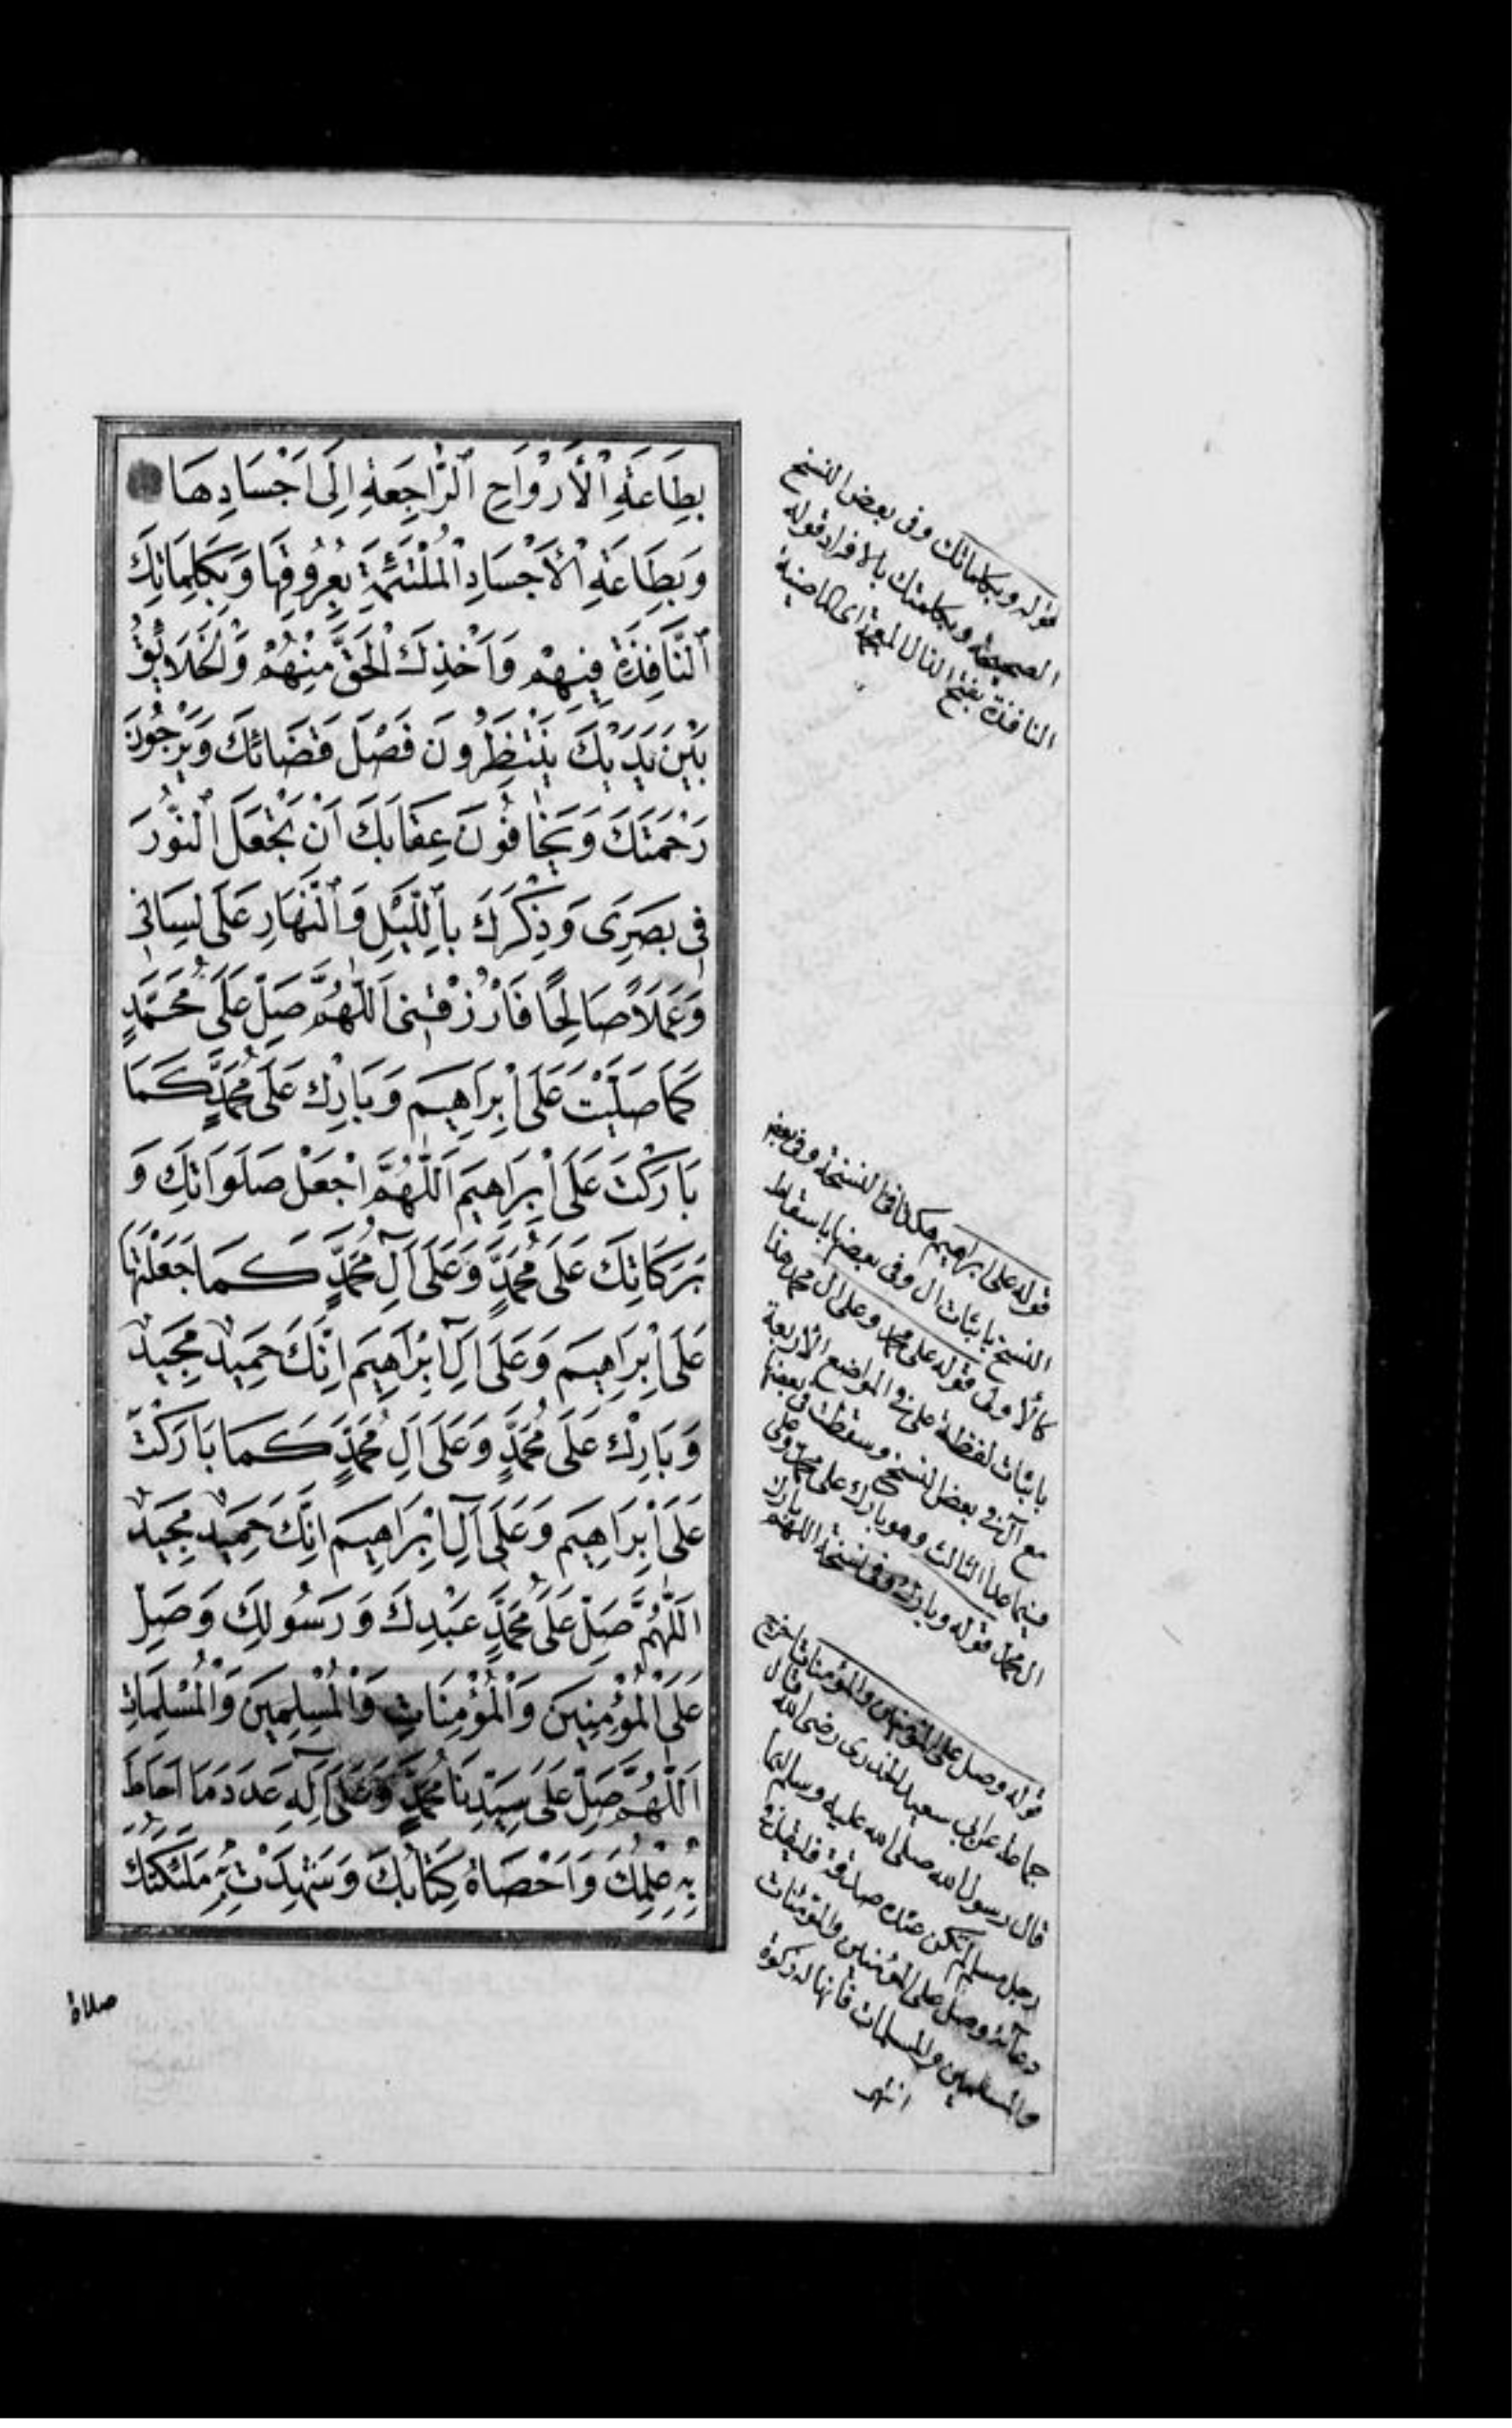 بِطَاعَةِ الْأَرْوَاحِ الرَّاجِعَةِ اِلَى اَجْسَادِهَا
وَبِطَاعَةِ الْأَجْسَادِ الْمُلْتَئِمَةِ بِعُرُوقِهَا وَبِكَلِمَاتِكَ
النَّافِذَةِ فِيهِمْ وَاَخْذِكَ الْحَقَّ مِنْهُمْ وَالْخَلَائِقُ
بَيْنَ يَدَيْكَ يَنْتَظِرُونَ فَصْلَ قَضَائِكَ وَيَرْجُونَ
رَحْمَتَكَ وَيَخَافُونَ عِقَابَكَ اَنْ تَجْعَلَ النُّورَ
فِى بَصَرِى وَذِكْرَكَ بِاللَّيْلِ وَالنَّهَارِ عَلَى لِسَانِى
وَعَمَلًا صَالِحًا فَارْزُقْنِى اَللّٰهُمَّ صَلِّ عَلَى مُحَمَّدٍ
كَمَا صَلَّيْتَ عَلَى اِبْرَاهِيمَ وَبَارِكْ عَلَى مُحَمَّدٍ كَمَا
بَارَكْتَ عَلَى اِبْرَاهِيمَ اَللّٰهُمَّ اجْعَلْ صَلَوَاتِكَ وَ
بَرَكَاتِكَ عَلَى مُحَمَّدٍ وَعَلَى آلِ مُحَمَّدٍ كَمَا جَعَلْتَهَا
عَلَى اِبْرَاهِيمَ وَعَلَى آلِ اِبْرَاهِيمَ اِنَّكَ حَمِيدٌ مَجِيدٌ
وَبَارِكْ عَلَى مُحَمَّدٍ وَعَلَى اٰلِ مُحَمَّدٍ كَمَا بَارَكْتَ
عَلَى اِبْرَاهِيمَ وَعَلَى آلِ اِبْرَاهِيمَ اِنَّكَ حَمِيدٌ مَجِيدٌ
اَللّٰهُمَّ صَلِّ عَلَى مُحَمَّدٍ عَبْدِكَ وَرَسُولِكَ وَصَلِّ
عَلَى الْمُؤْمِنِينَ وَالْمُؤْمِنَاتِ وَالْمُسْلِمِينَ وَالْمُسْلِمَاتِ
اَللّٰهُمَّ صَلِّ عَلَى سَيِّدِنَا مُحَمَّدٍ وَعَلَى آلِهِ عَدَدَ مَا اَحَاطَ
بِهِ عِلْمُكَ وَاَحْصَاهُ كِتَابُكَ وَشَهِدَتْ بِهِ مَلٰئِكَتُكَ
صلاة
قوله وبكلماتك وفى بعض النسخ
الصحيحة وبكلمتك بالافراد قوله
النافذة بفتح الذال المعجمة اى الماضية
قوله على ابراهيم هكذا فى النسخة وفى بعض
النسخ باثبات ال وفى بعضها باسقاط
كالاولى قوله على محمد وعلى ال محمد هذا
باثبات لفظة على فى المواضع الاربعة
مع آل فى بعض النسخ وسقطت فى بعضها
فيما عدا الثالث وهو بارك على محمد وعلى
ال محمد قوله وبارك وفى نسخة اللهم بارك
قوله وصل على المؤمنين والمؤمنات اخرج
جماعة عن ابى سعيد الخدرى رضى الله قال
قال رسول الله صلى الله عليه وسلم ايما
رجل مسلم لم تكن عنده صدقة فليقل فى
دعائه وصل على المؤمنين والمؤمنات
والمسلمين والمسلمات فانها له زكوة
انتهى